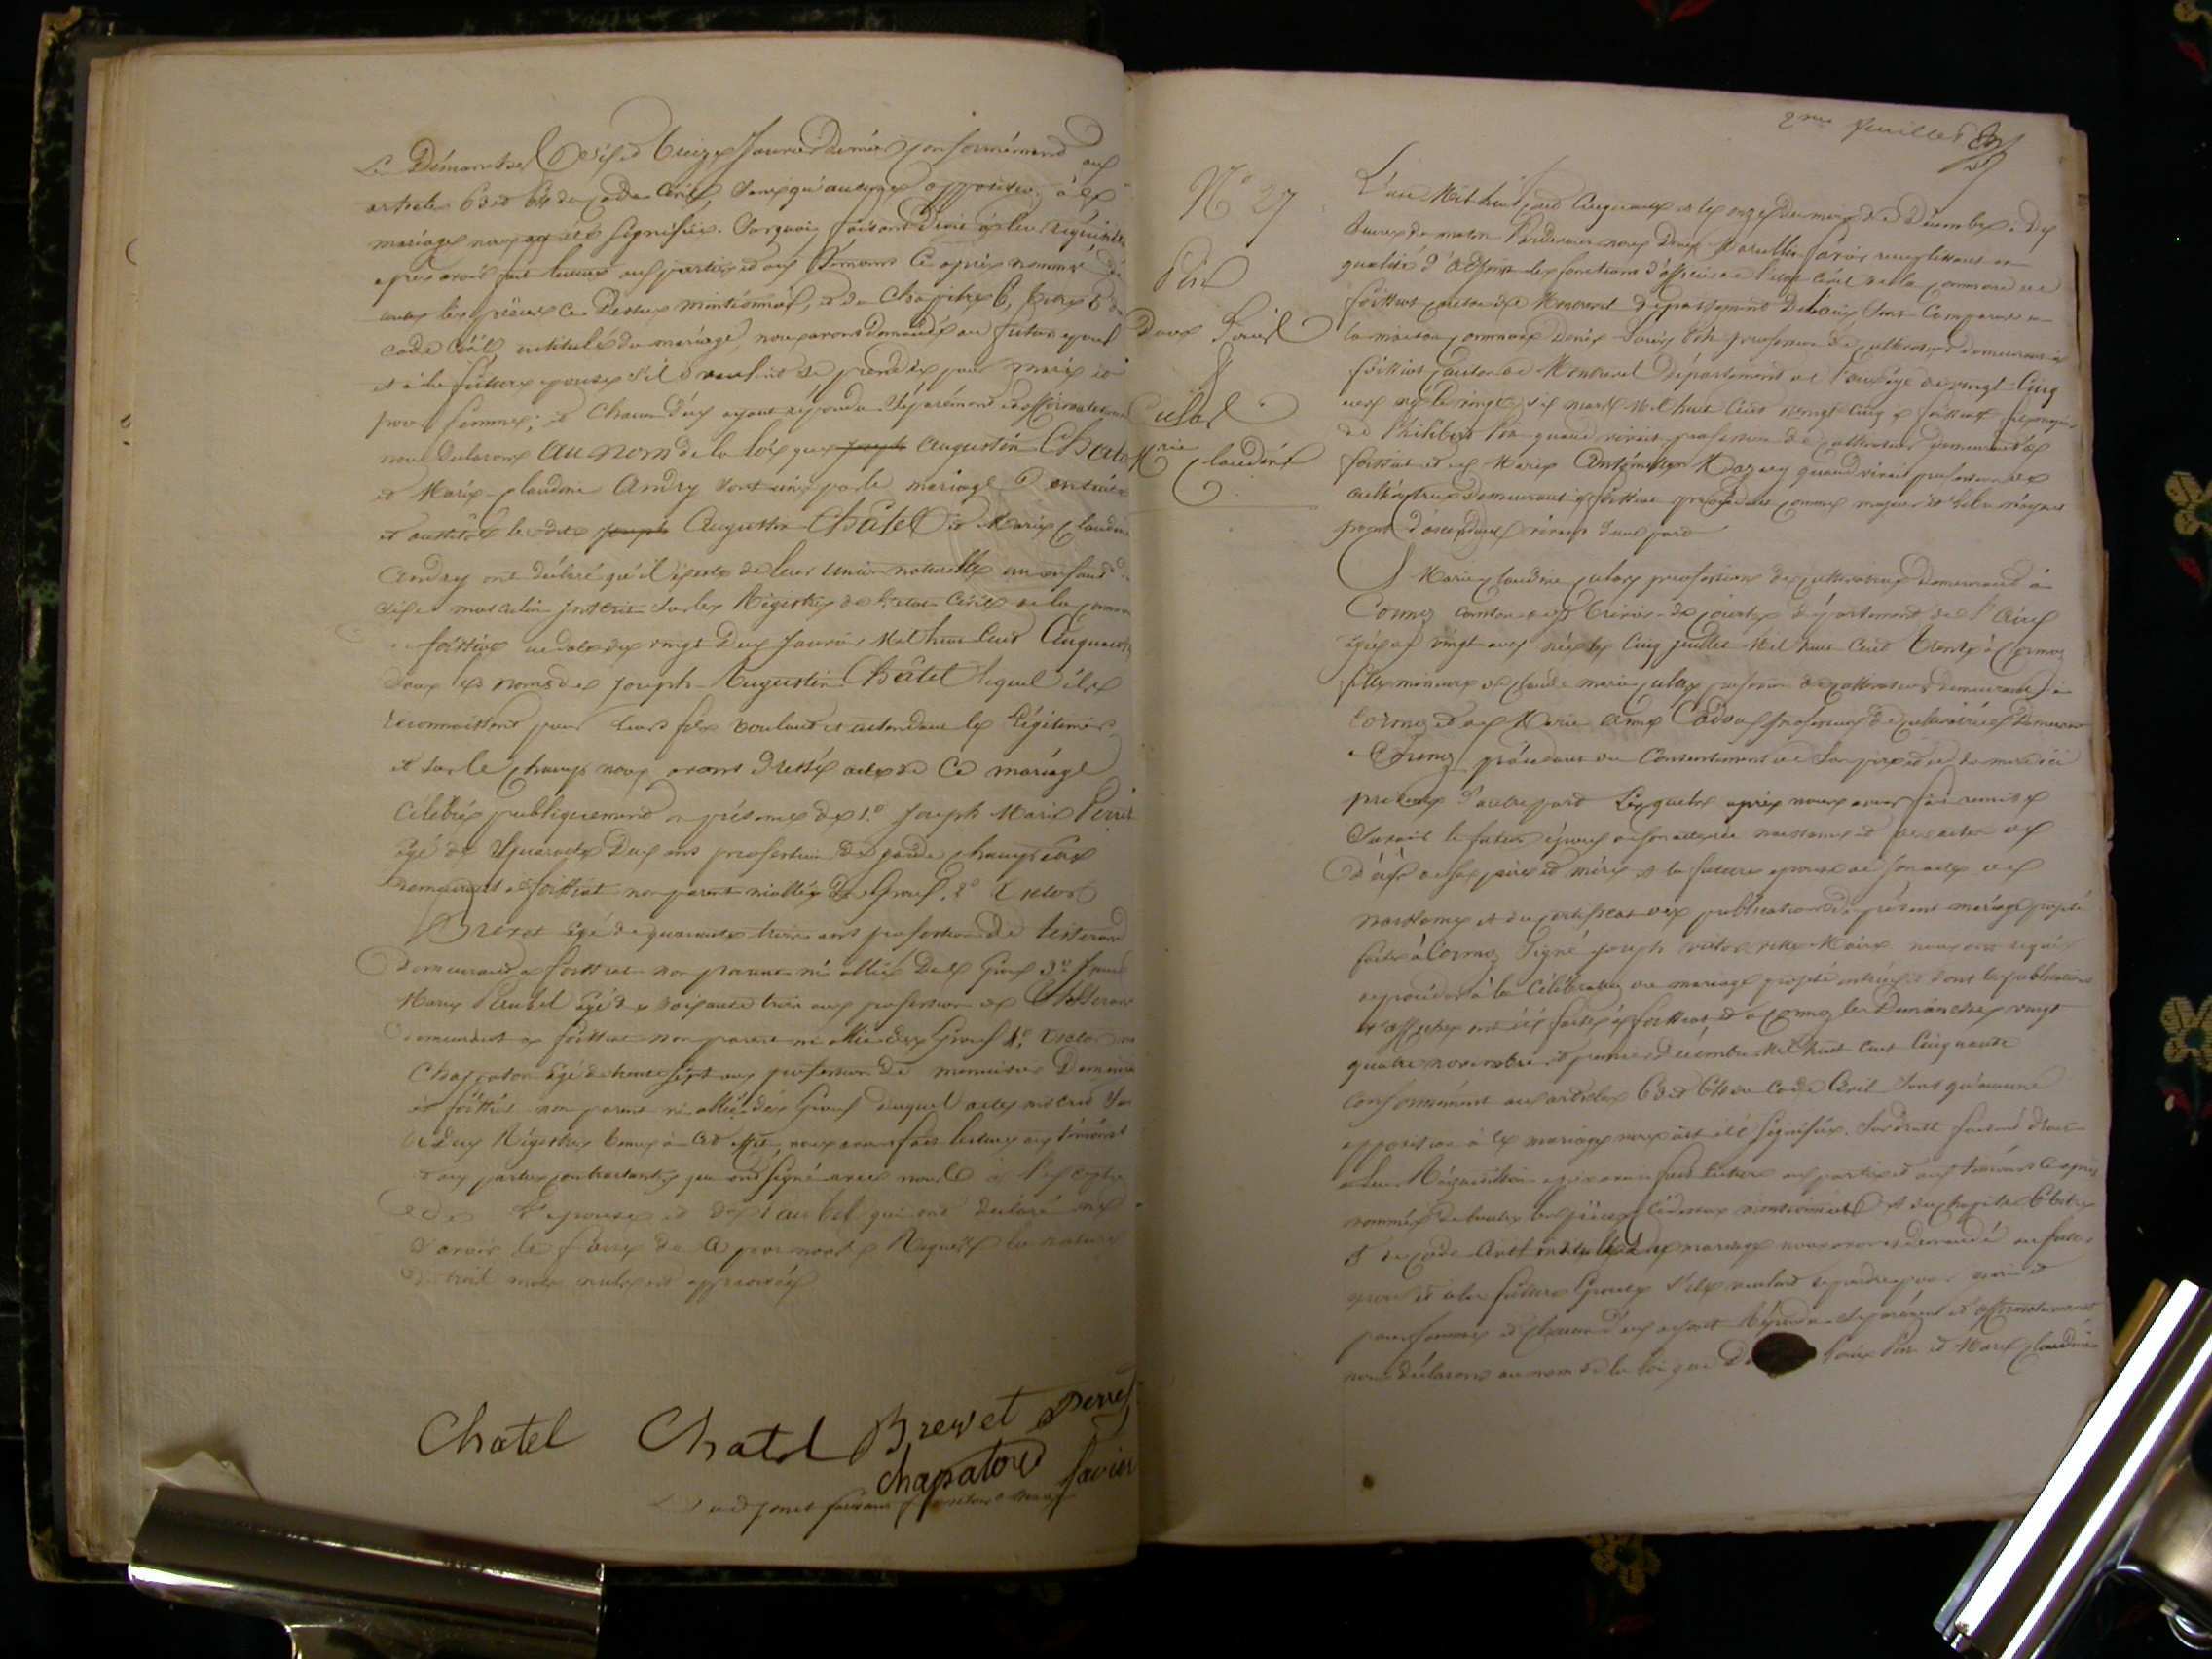 Le Démanches six et treize Janvier dernier conformément aux
articles 63 et 64 du code Civil, sans qu'aucune opposition à ce
mariage nous ait été signifiée. Surquoi faisant droit à leur réquisition
après avoir fait lecture aux parties et aux témoins ci après nommés de
toutes les pièces ci dessus mentionnées, et du chapitre 6, titre 5 du
code Civil intitulé du mariage, nous avons demandé au futur époux
et à la future épouse s'ils veulent se prendre pour mari et
pour femme; et chacun d'eux ayant répondu séparément et affirmativement
nous déclarons au nom de la loi que Joseph Augustin Chatel
et Marie Claudine Andry sont unis par le mariage
et aussitôt les dits Joseph Augustin Châtel et Marie Claudine
Andry ont déclaré qu'il existe de leur union naturelle un enfant du
sexe masculin inscrit sur les Régistres de l'état Civil de la commune
foissiat en date du vingt deux Janvier Mil huit Cent Cinquante
sous les noms de Joseph Augustin Châtel lequel ils
reconnaissent pour leur fils voulant et entendant le légitimer
et sur le champ nous avons dressé acte de ce mariage
célébré publiquement en présence de 1.º Joseph Marie Perret
âgé de quarante deux ans profession de garde champêtre
demeurant à foissiat non parent ni allié des époux 2º Victor
Brevet âgé de quarante trois ans profession de tisserand
demeurant à foissiat non parent ni allié des époux 3º
Marie Paubel âgé de soixante trois ans profession de tisserand
demeurant à foissiat non parent ni allié des époux 4º Victor
Chapaton âgé de trente sept ans profession de menuisier demeurant
à foissiat non parent ni allié des époux duquel acte inscrit sur
les deux Régistres tenus à cet effet, nous avons fait lecture aux témoins
et aux parties contractantes qui ont signé avec nous à l'exception
de l'épouse et de Paubel qui ont déclaré ne
savoir le faire de ce par nous Requis la rature
de trois mots nuls est approuvée
Chatel Chatel Brevet Perret
Chapaton favier
adjoint faisant fonctions maire
2me feuillet
Nº 27
Pin
Denis Louis
&
Culas
Mrie Claudine
L'an Mil huit cent cinquante et le onze du mois de Décembre à dix
heures du matin Pardevant nous Denis Marcellin favier remplissant en
qualité d'adjoint les fonctions d'officier de l'état civil de la commune de
foissiat canton de Montrevel département de l'ain, sont Comparus en
la maison commune Denis Louis Pin profession de cultivateur demeurant à
foissiat canton de Montrevel département de l'ain âgé de vingt-cinq
ans né le vingt six mars Mil huit Cent vingt cinq à foissiat fils majeur
de Philibert Pin quand vivait profession de cultivateur demeurant à
foissiat et de Marie Antoinette Mazuy quand vivait profession de
cultivatrice demeurant à foissiat procédant comme majeur et n'ayant
point d'ascendants vivants d'une part
& Marie Claudine Culas profession de cultivatrice demeurant à
Cormoz canton de St Trivier de courtes département de l'Ain
âgée de vingt ans née le cinq juillet Mil huit Cent trente à Cormoz
fille mineure de Claude marie Culas profession de cultivateur demeurant à
Cormoz et de Marie Anne Cadoux profession de cultivatrice demeurant
à Cormoz procédant du Consentement de son père et de sa mère ici
présents d'autre part Lesquels après nous avoir fait remise
savoir le futur époux de son acte de naissance et des actes de
décès de ses père et mère & la future épouse de son acte de
naissance et du certificat des publications du présent mariage projeté
faites à Cormoz Signé Joseph Victor Maire nous ont requis
de procéder à la célébration du mariage projeté entr'eux et dont les publications
et affiches ont été faites à foissiat et à Cormoz les Dimanches vingt
quatre novembre et premier décembre Mil huit cent Cinquante
conformément aux articles 63 et 64 du Code Civil sans qu'aucune
opposition à ce mariage nous ait été signifiée. faisant droit
à leur Réquisition après avoir fait lecture aux parties et aux témoins ci après
nommés de toutes les pièces ci dessus mentionnées et du chapitre 6 titre
5 du code Civil intitulé du mariage nous avons demandé au futur
époux et à la future épouse s'ils veulent se prendre pour mari et
pour femme et chacun d'eux ayant Répondu séparément et affirmativement
nous déclarons au nom de la loi que De Louis Pin et Marie Claudine